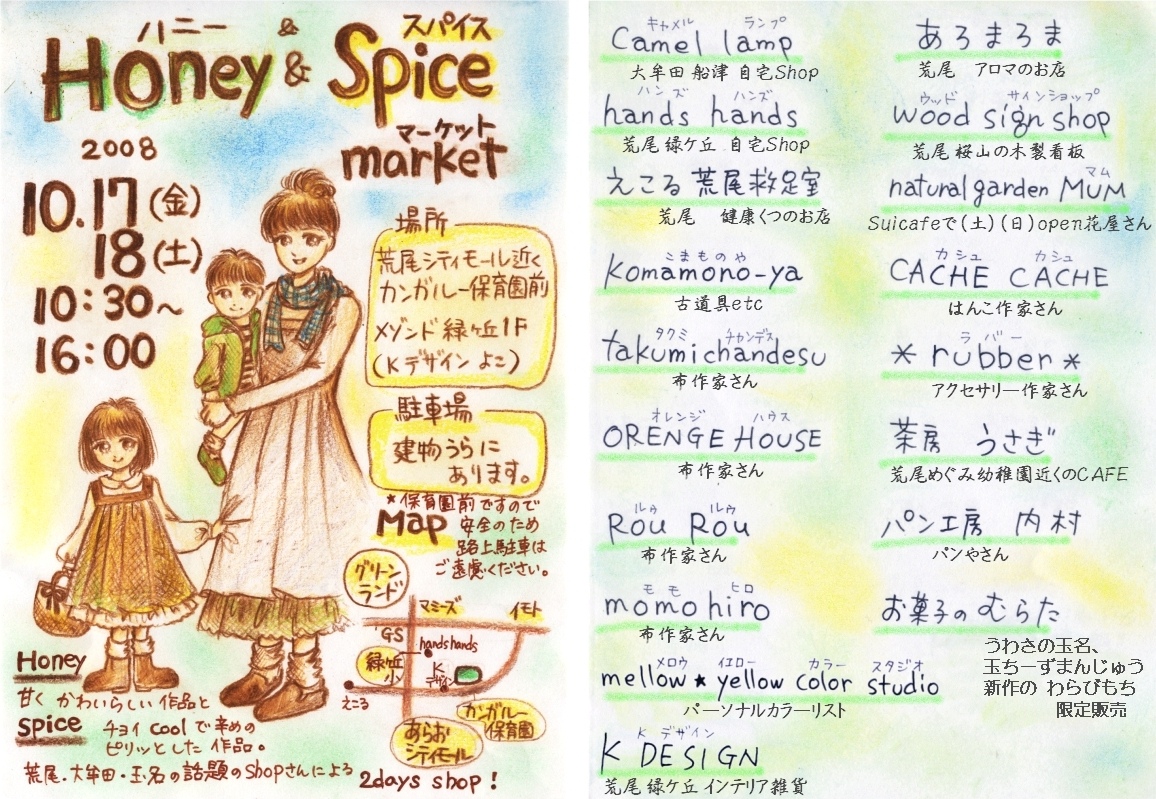 ハニー & スパイス
Honey & Spice
マーケット
market
2008
10.17(金)
18(土)
10:30〜
16:00
場所
荒尾シティモール近く
カンガルー保育園前
メゾンド緑ヶ丘1F
(Kデザイン よこ)
駐車場
建物うらに
あります。
*保育園前ですので
安全のため
路上駐車は
ご遠慮ください。
Map
グリーン
ランド
マミーズ
イモト
GS
hands hands
緑ヶ丘
小
K
デザイン
えこる
カンガルー
保育園
あらお
シティモール
Honey
甘く かわいらしい 作品と
Spice
チョイ coolで辛めの
ピリッとした 作品。
荒尾.大牟田・玉名の話題のShopさんによる 2days shop!
キャメル ランプ
Camel lamp
大牟田 船津 自宅Shop
ハンズ ハンズ
hands hands
荒尾緑ケ丘 自宅Shop
えこる 荒尾救足室
荒尾 健康くつのお店
こまものや
komamono-ya
古道具etc
タクミ チャンデス
takumichandesu
布作家さん
オレンジ ハウス
ORENGE HOUSE
布作家さん
ルゥ ルゥ
Rou Rou
布作家さん
モモ ヒロ
momo hiro
布作家さん
メロウ イエロー カラー スタジオ
mellow★yellow color studio
パーソナルカラーリスト
K デザイン
K DESIGN
荒尾緑ケ丘インテリア雑貨
あろまろま
荒尾 アロマのお店
ウッド サインショップ
wood sign shop
荒尾桜山の木製看板
マム
natural garden MUM
Suicafeで(土)(日)open花屋さん
カシュ カシュ
CACHE CACHE
はんこ作家さん
ラバー
*rubber*
アクセサリー作家さん
茶房 うさぎ
荒尾めぐみ幼稚園近くのCAFE
パン工房 内村
パンやさん
お菓子の むらた
うわさの玉名、
玉ちーずまんじゅう
新作の わらびもち
限定販売